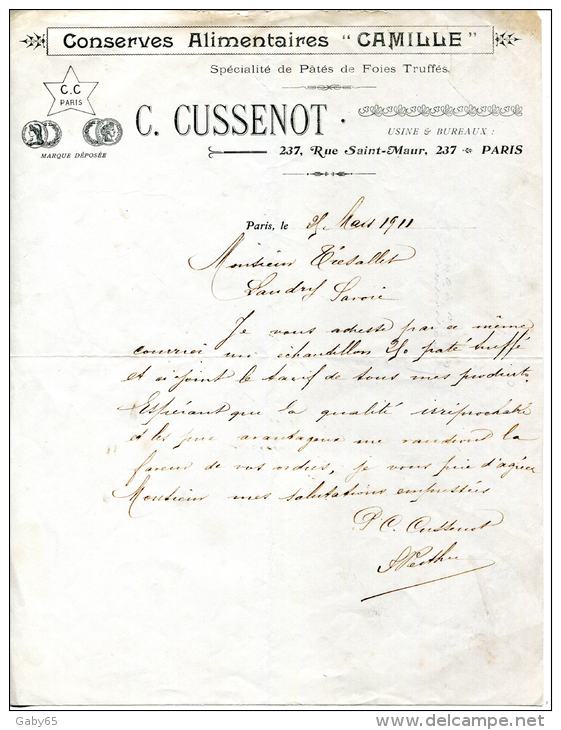 Conserves Alimentaires "CAMILLE"
Spécialité de Pâtés de Foies Truffés.
C.C
PARIS
MARQUE DÉPOSÉE
C. CUSSENOT.
USINE & BUREAUX :
237, Rue Saint-Maur, 237 PARIS
Paris, le Mars 1911
Monsieur
Landry Savoie
Je vous adresse par ce même
courrier un échantillon paté truffé
et ci joint le tarif de tous mes produits
Espérant que la qualité irréprochable
et les prix avantageux me vaudront la
faveur de vos ordres, je vous prie d'agréer
Monsieur mes salutations empressées
P. C. Cussenot
Gaby65
www.delcampe.net